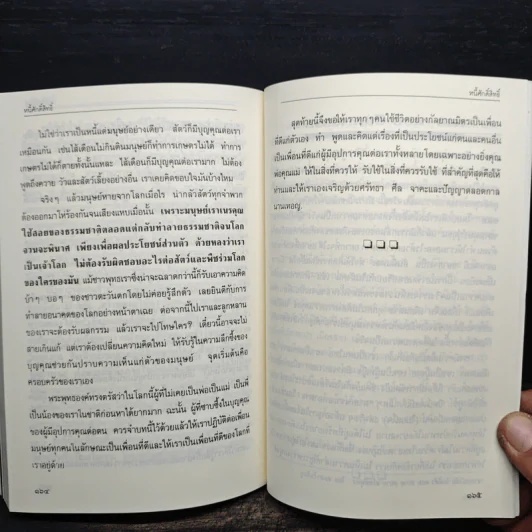 หนี้ศักดิ์สิทธิ์
ไม่ใช่ว่าเราเป็นหนี้แต่มนุษย์อย่างเดียว สัตว์ก็มีบุญคุณต่อเรา
เหมือนกัน เช่นไส้เดือนไม่กินดินมนุษย์ก็ทำการเกษตรไม่ได้ ทำการ
เกษตรไม่ได้ก็ตายทั้งนั้นแหละ ไส้เดือนก็มีบุญคุณต่อเรามาก ไม่ต้อง
พูดถึงควาย วัวและสัตว์เลี้ยงอย่างอื่น เราเคยคิดขอบใจมันบ้างไหม
จริงๆ แล้วมนุษย์หายจากโลกเมื่อไร น่ากลัวสัตว์ทุกจำพวก
ต้องออกมาไห้ร้องกันจนเสียงแหบเมื่อนั้น เพราะมนุษย์เราเนรคุณ
ใช้สอยของธรรมชาติตลอดแต่กลับทำลายธรรมชาติจนโลก
งามจะพินาศ เพียงเพื่อผลประโยชน์ส่วนตัว ด้วยหลงว่าเรา
เป็นเจ้าโลก ไม่ต้องรับผิดชอบอะไรต่อสัตว์และพืชร่วมโลก
ของใครของมัน แม้ชาวพุทธเราซึ่งน่าจะฉลาดกว่านี้ก็รับเอาความคิด
บ้าๆ บอๆ ของชาวตะวันตกโดยไม่ค่อยรู้สึกตัว เลยยินดีกับการ
ทำลายอนาคตของโลกอย่างหน้าตาเฉย ต่อจากนี้ไปเราและลูกหลาน
ของเราจะต้องรับผลกรรม แล้วเราจะไปโทษใคร? เดี๋ยวนี้อาจจะไม่
สายเกินแก้ แต่เราต้องเปลี่ยนความคิดใหม่ ให้รับรู้ในความลึกซึ้งของ
บุญคุณช่วยกันปราบความเห็นแก่ตัวของมนุษย์ จุดเริ่มต้นคือ
ครอบครัวของเราเอง
พระพุทธองค์ทรงตรัสว่าในโลกนี้ผู้ที่ไม่เคยเป็นพ่อเป็นแม่ เป็นพี่
เป็นน้องของเราในชาติก่อนหาได้ยากมาก ฉะนั้น ผู้ที่ซาบซึ้งในบุญคุณ
ของผู้มีอุปการคุณต่อตน ควรจำบทนี้ไว้ด้วยแล้วให้เราปฏิบัติต่อเพื่อน
มนุษย์ทุกคนในลักษณะเป็นเพื่อนที่ดีและให้เราเป็นเพื่อนที่ดีของโลกที่
เราอยู่ด้วย
๘๖๔
หนี้ศักดิ์สิทธิ์
สุดท้ายนี้จึงขอให้เราทุกๆ คนใช้ชีวิตอย่างกัลยาณมิตรเป็นเพื่อน
ที่ดีแก่ตัวเอง ทำ พูดและคิดแต่เรื่องที่เป็นประโยชน์แก่ตนและคนอื่น
เป็นเพื่อนที่ดีแก่ผู้มีอุปการคุณต่อเราทั้งหลายโดยเฉพาะอย่างยิ่งคุณ
พ่อคุณแม่ ให้ในสิ่งที่ควรให้ รับใช้ในสิ่งที่ควรรับใช้ ที่สำคัญที่สุดคือให้
ท่านและให้เราเองเจริญด้วยศรัทธา ศีล จาคะและปัญญาตลอดกาล
นานเทอญ.
๘๖๕